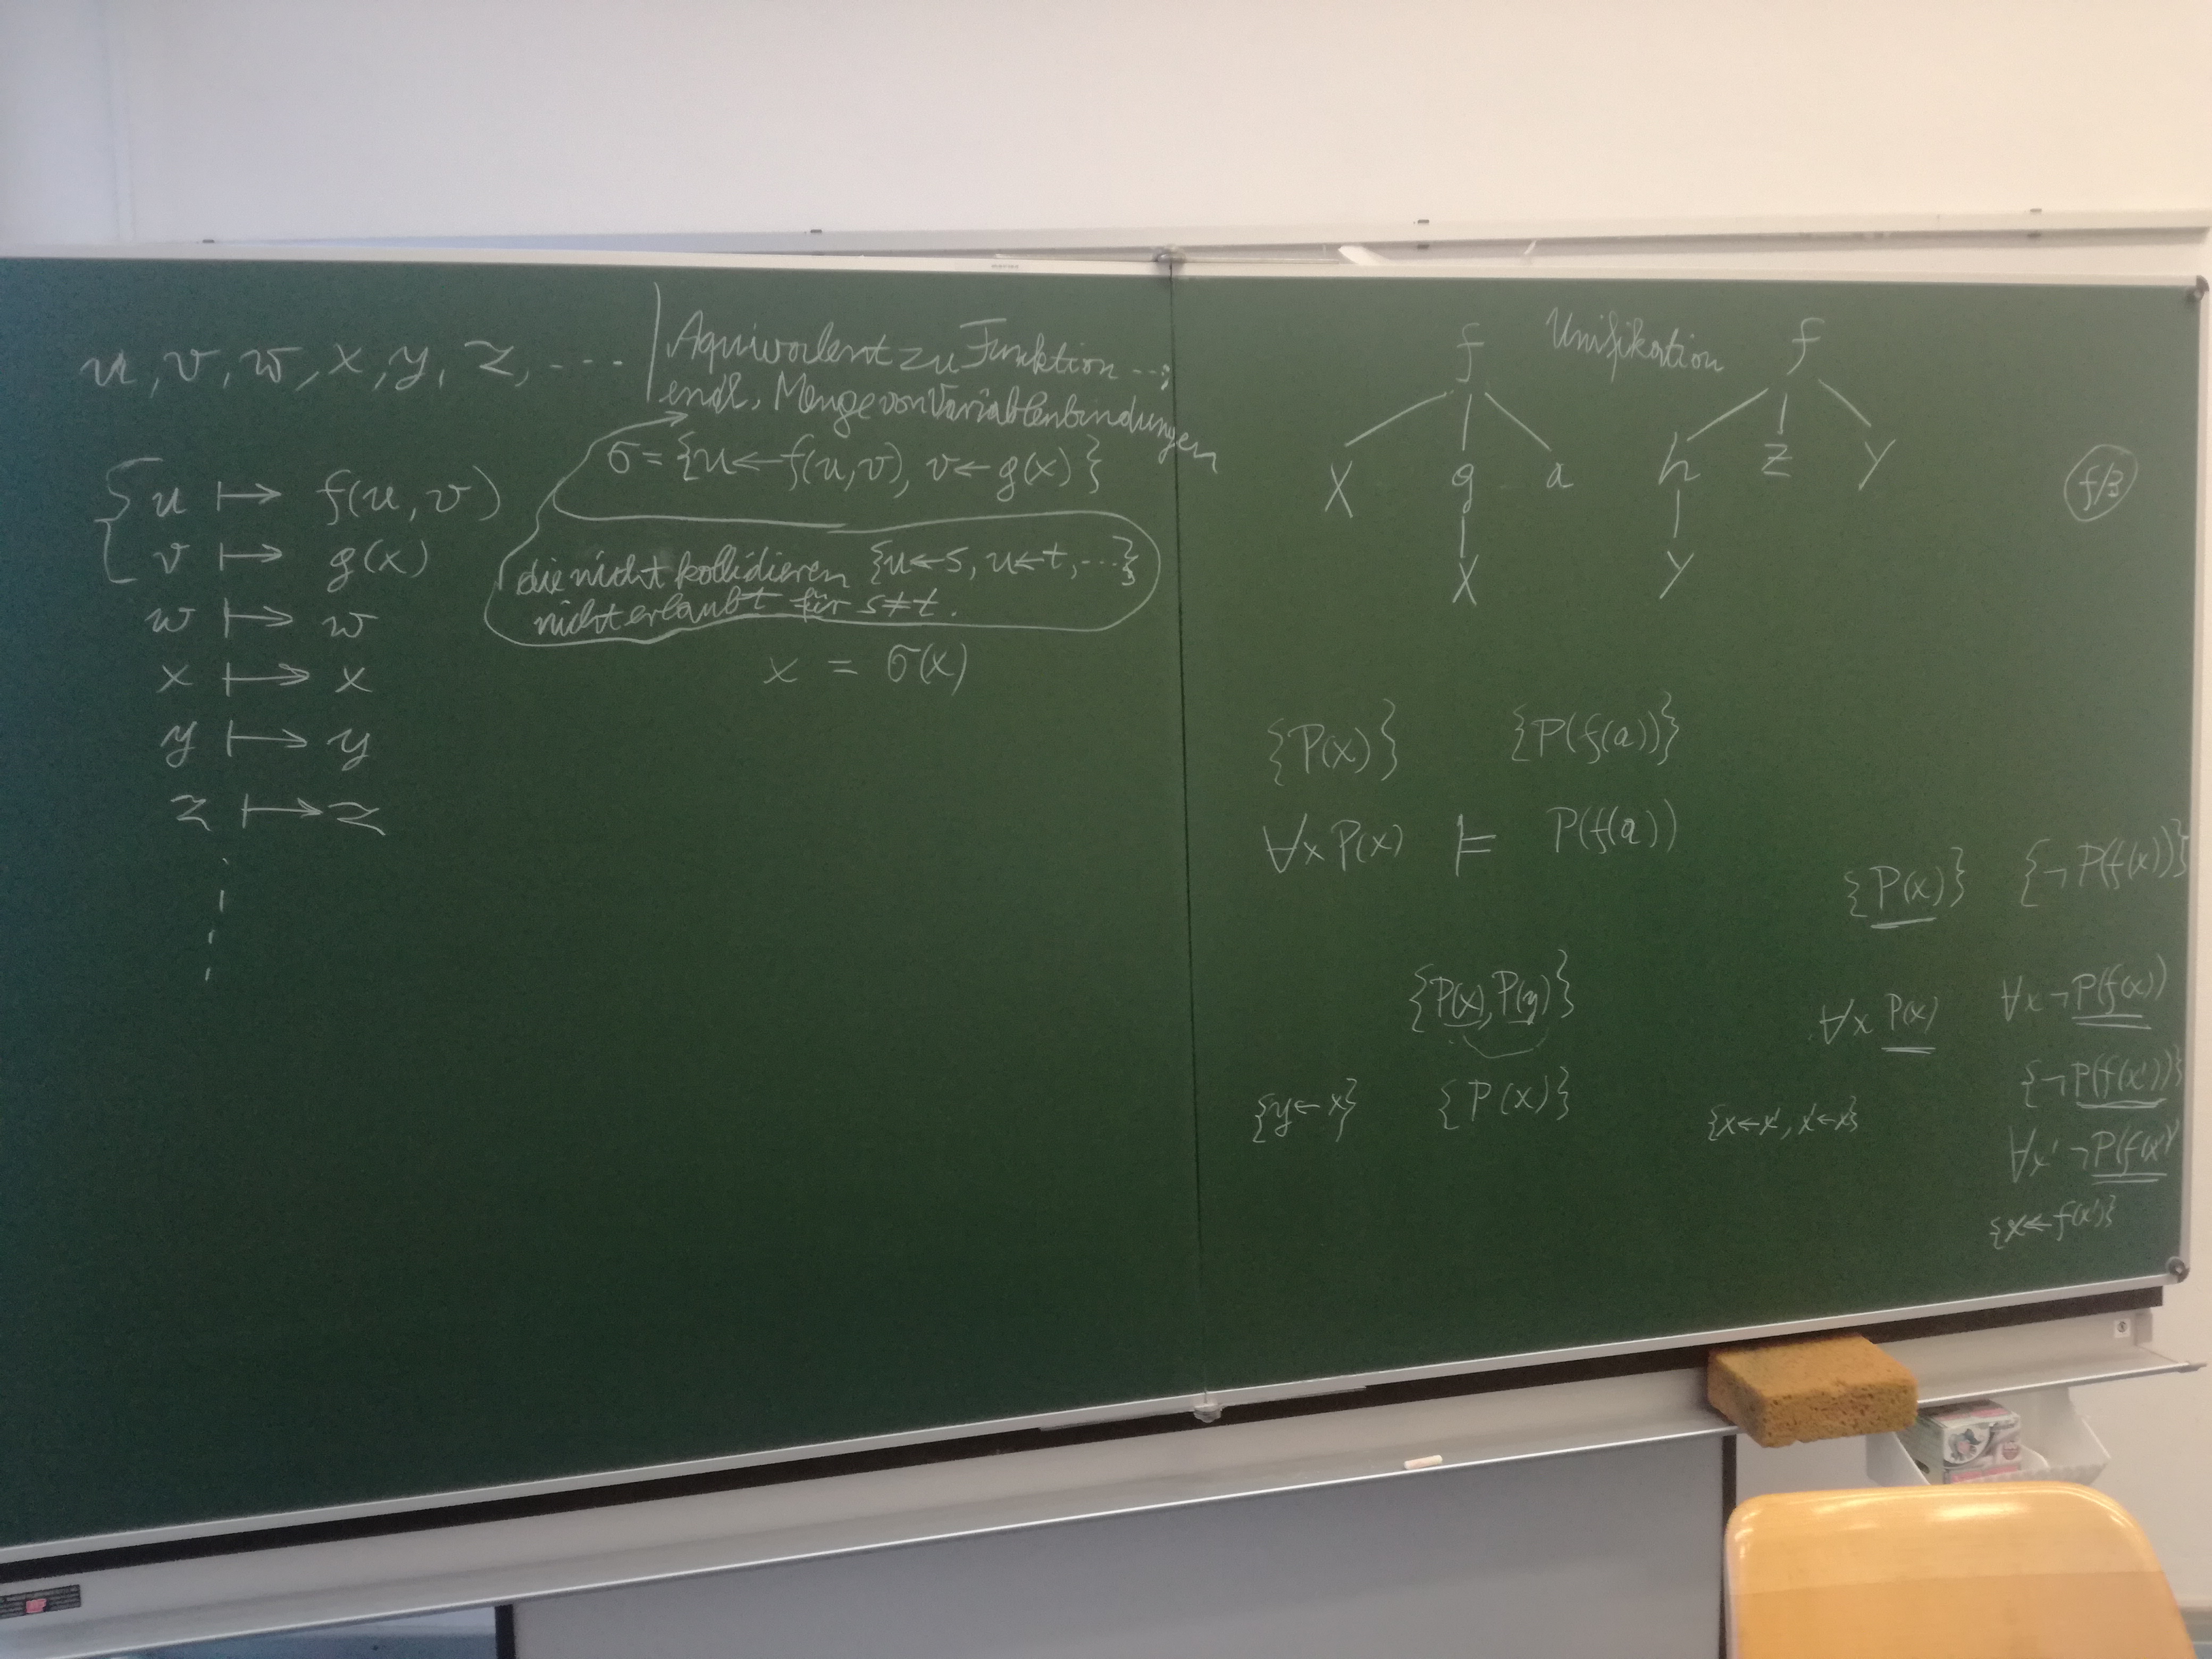 u, v, w, x, y, z, ...
Äquivalent zu Funktion ...;
endl. Menge von Variablenbindungen
σ = {u ← f(u, v), v ← g(x)}
die nicht kollidieren {u ← s, u ← t, ...}
nicht erlaubt für s ≠ t.
x = σ(x)
u ↦ f(u, v)
v ↦ g(x)
w ↦ w
x ↦ x
y ↦ y
z ↦ z
Unifikation
f f
X g a h Z Y
X Y
f/3
{P(x)} {P(f(a))}
∀x P(x) ⊨ P(f(a))
{P(x), P(y)}
{y ← x} {P(x)}
{P(x)} {¬P(f(x))}
∀x P(x) ∀x ¬P(f(x))
{x ← x', x' ← x} {¬P(f(x'))}
∀x' ¬P(f(x'))
{x ← f(x')}